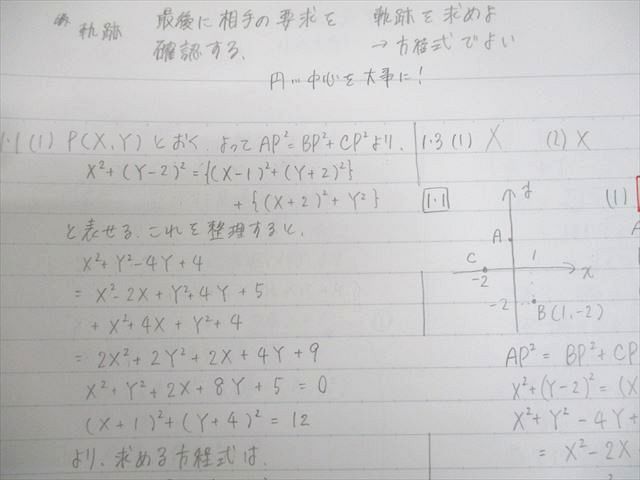 軌跡 最後に相手の要求を 軌跡を求めよ
確認する. →方程式でよい
円…中心を大事に!
1·1 (1) P(X,Y) とおく. よって AP²=BP²+CP² より,
X²+(Y-2)²={(X-1)²+(Y+2)²}
+{(X+2)²+Y²}
と表せる. これを整理すると,
X²+Y²-4Y+4
= X²-2X+Y²+4Y+5
+ X²+4X+Y²+4
= 2X²+2Y²+2X+4Y+9
X²+Y²+2X+8Y+5=0
(X+1)²+(Y+4)²=12
より. 求める方程式は.
1·3 (1) X (2) X
1·1 (1)
y
A
C 1
-2 x
-2 B(1,-2)
AP²=BP²+CP
X²+(Y-2)²=(X
X²+Y²-4Y+
= X²-2X